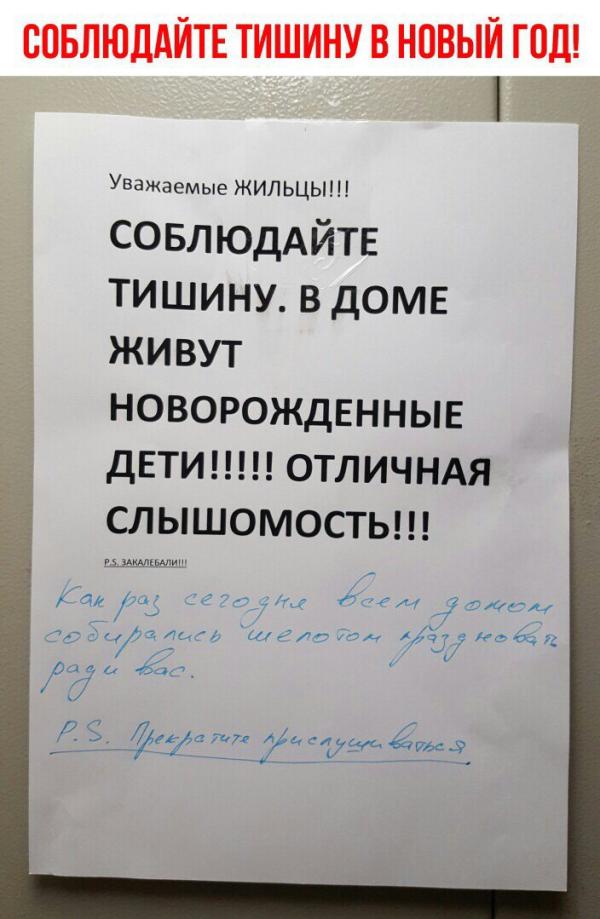 СОБЛЮДАЙТЕ ТИШИНУ В НОВЫЙ ГОД!
Уважаемые ЖИЛЬЦЫ!!!
СОБЛЮДАЙТЕ
ТИШИНУ. В ДОМЕ
ЖИВУТ
НОВОРОЖДЕННЫЕ
ДЕТИ!!!!! ОТЛИЧНАЯ
СЛЫШОМОСТЬ!!!
P.S. ЗАКАЛЕБАЛИ!!!
Как раз сегодня всем домом
собирались шепотом праздновать
ради вас.
P.S. Прекратите прислушиваться